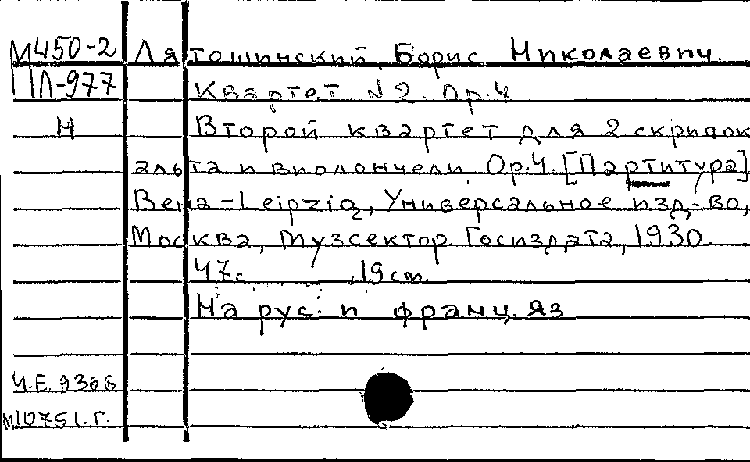 М450-2 Лятошинский, Борис Николаевич.
Л-977 Квартет №2. Ор.4
Н Второй квартет для 2 скрипок
альта и виолончели. Ор.4. [Партитура]
Вена-Leipzig, Универсальное изд-во,
Москва, Музсектор Госиздата, 1930.
47с. 19см.
На рус. и франц. яз